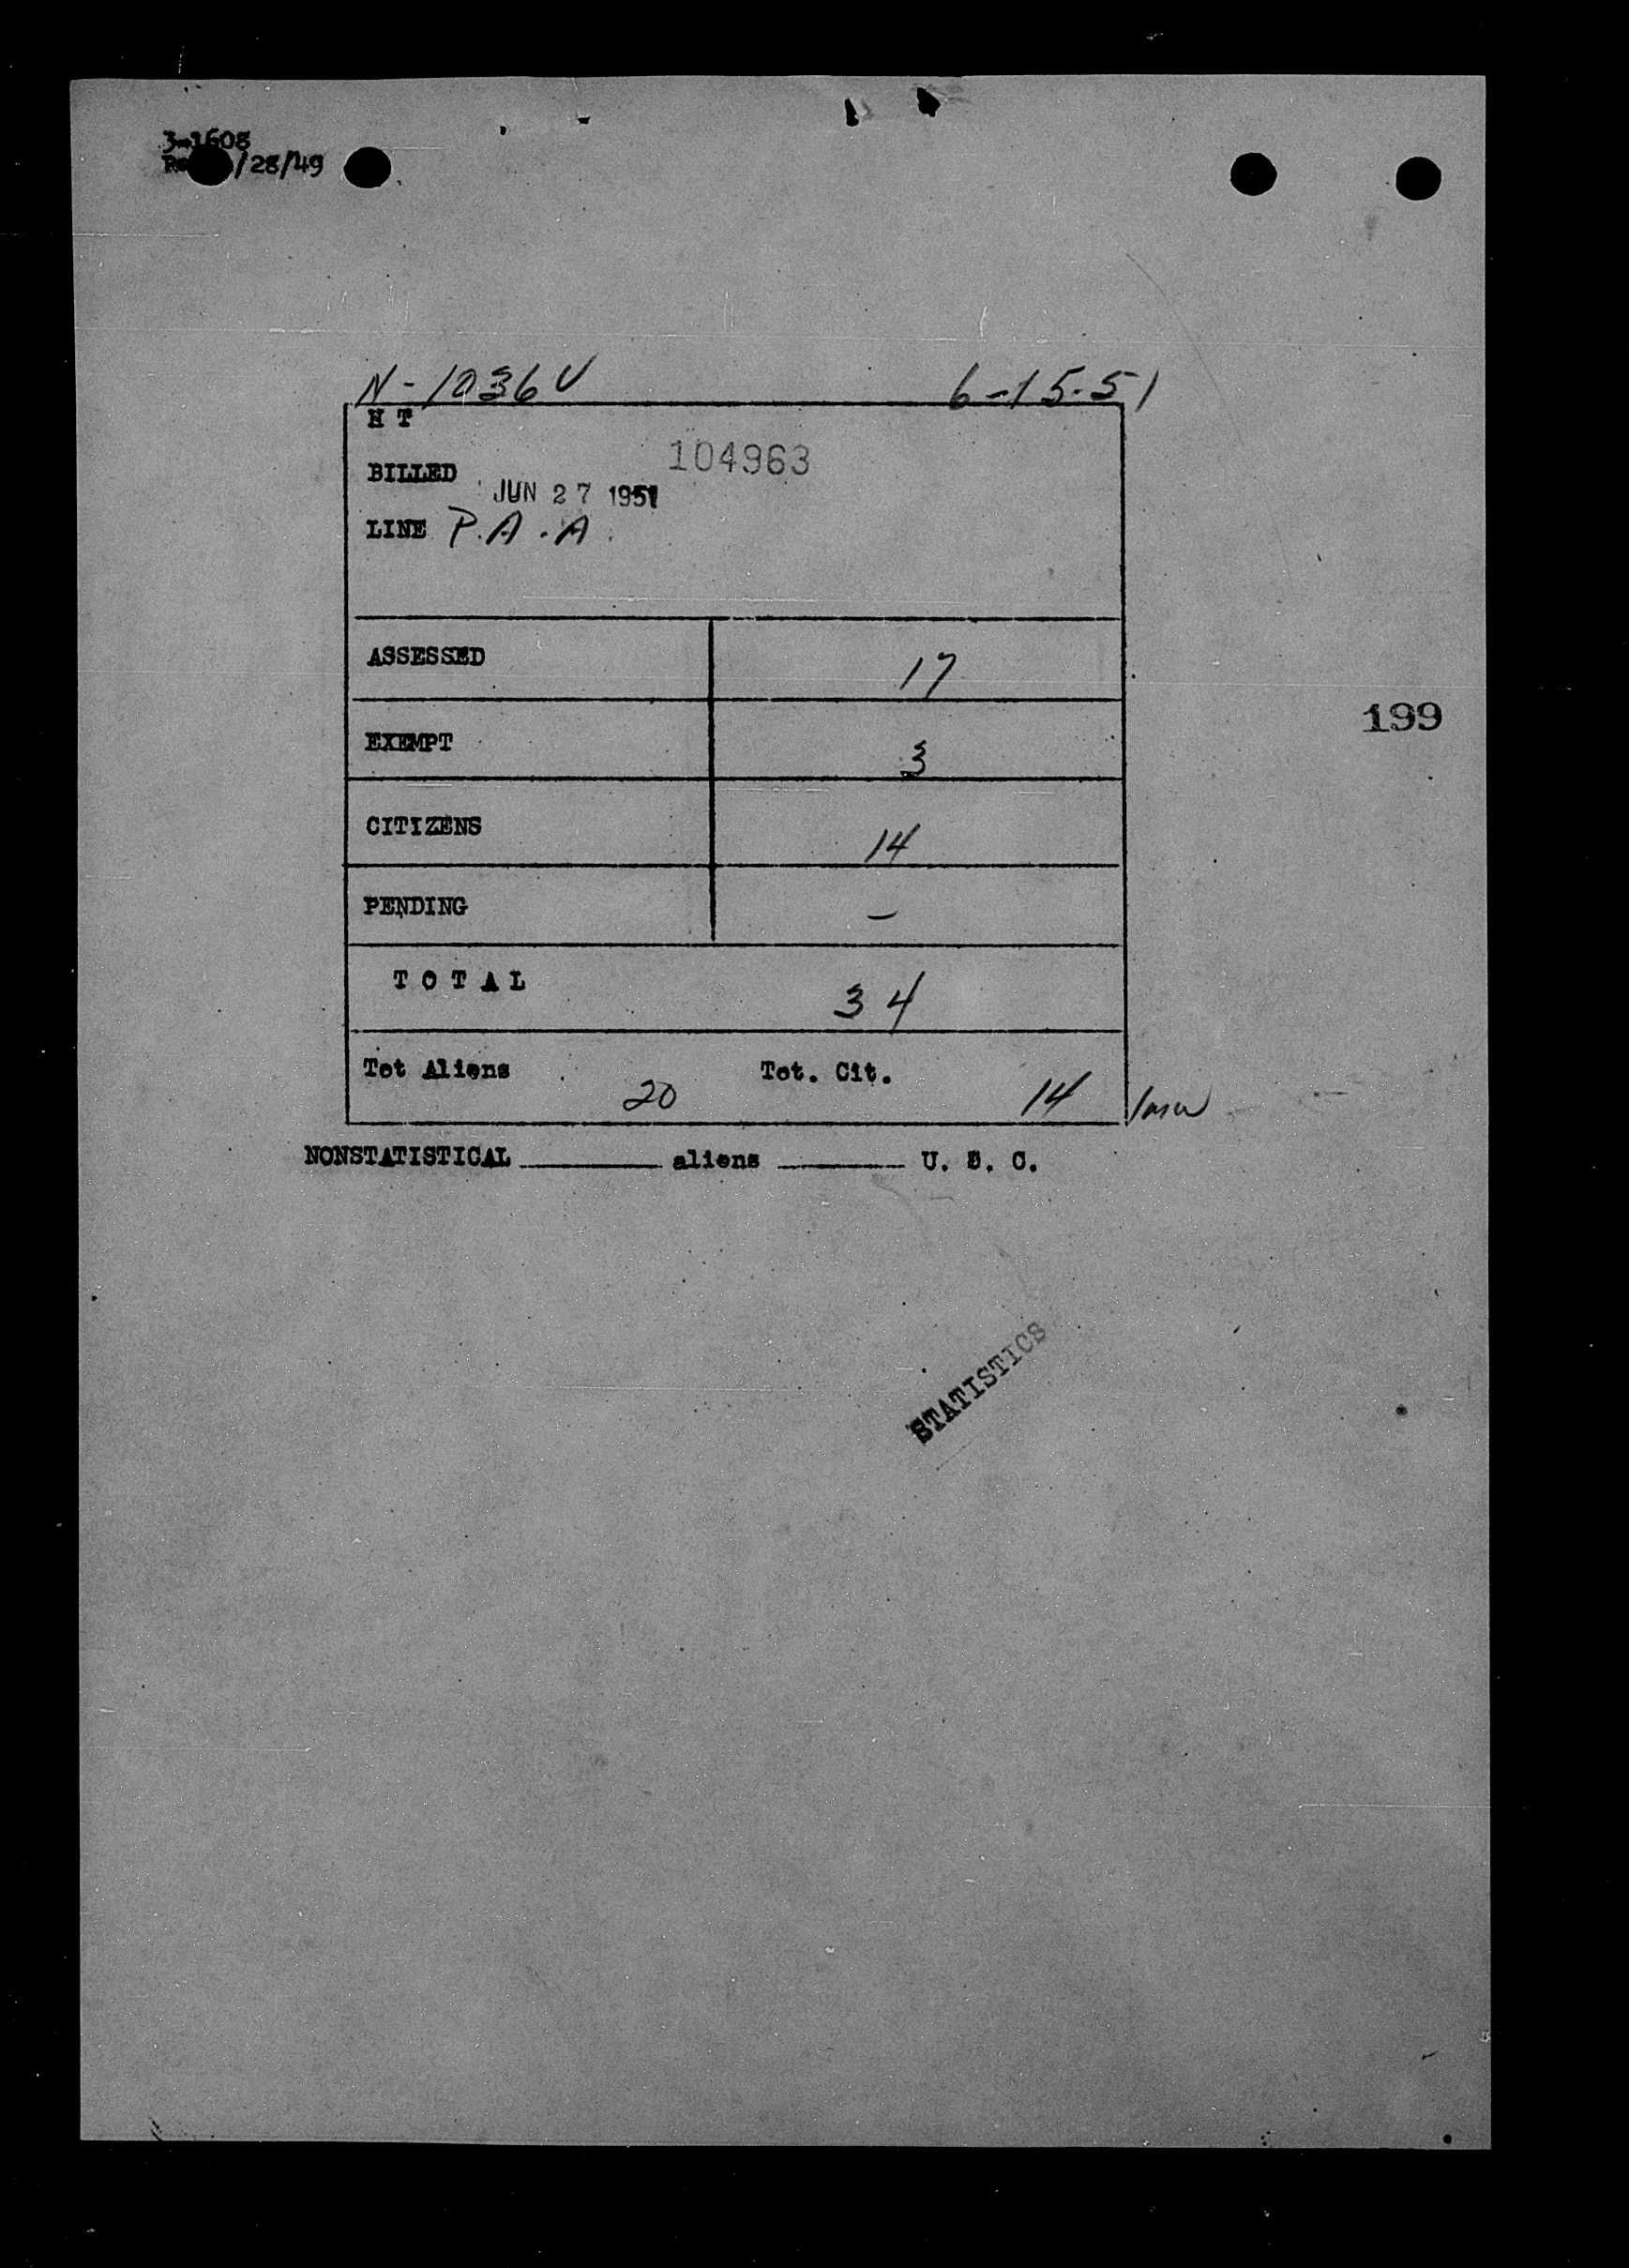 3-1608
/28/49
N-1036V 6-15-51
H T
104963
BILLED
JUN 27 1951
LINE P.A.A.
ASSESSED 17
199
EXEMPT 3
CITIZENS 14
PENDING –
TOTAL 34
Tot Aliens 20 Tot. Cit. 14
NONSTATISTICAL ________ aliens ________ U. S. C.
STATISTICS